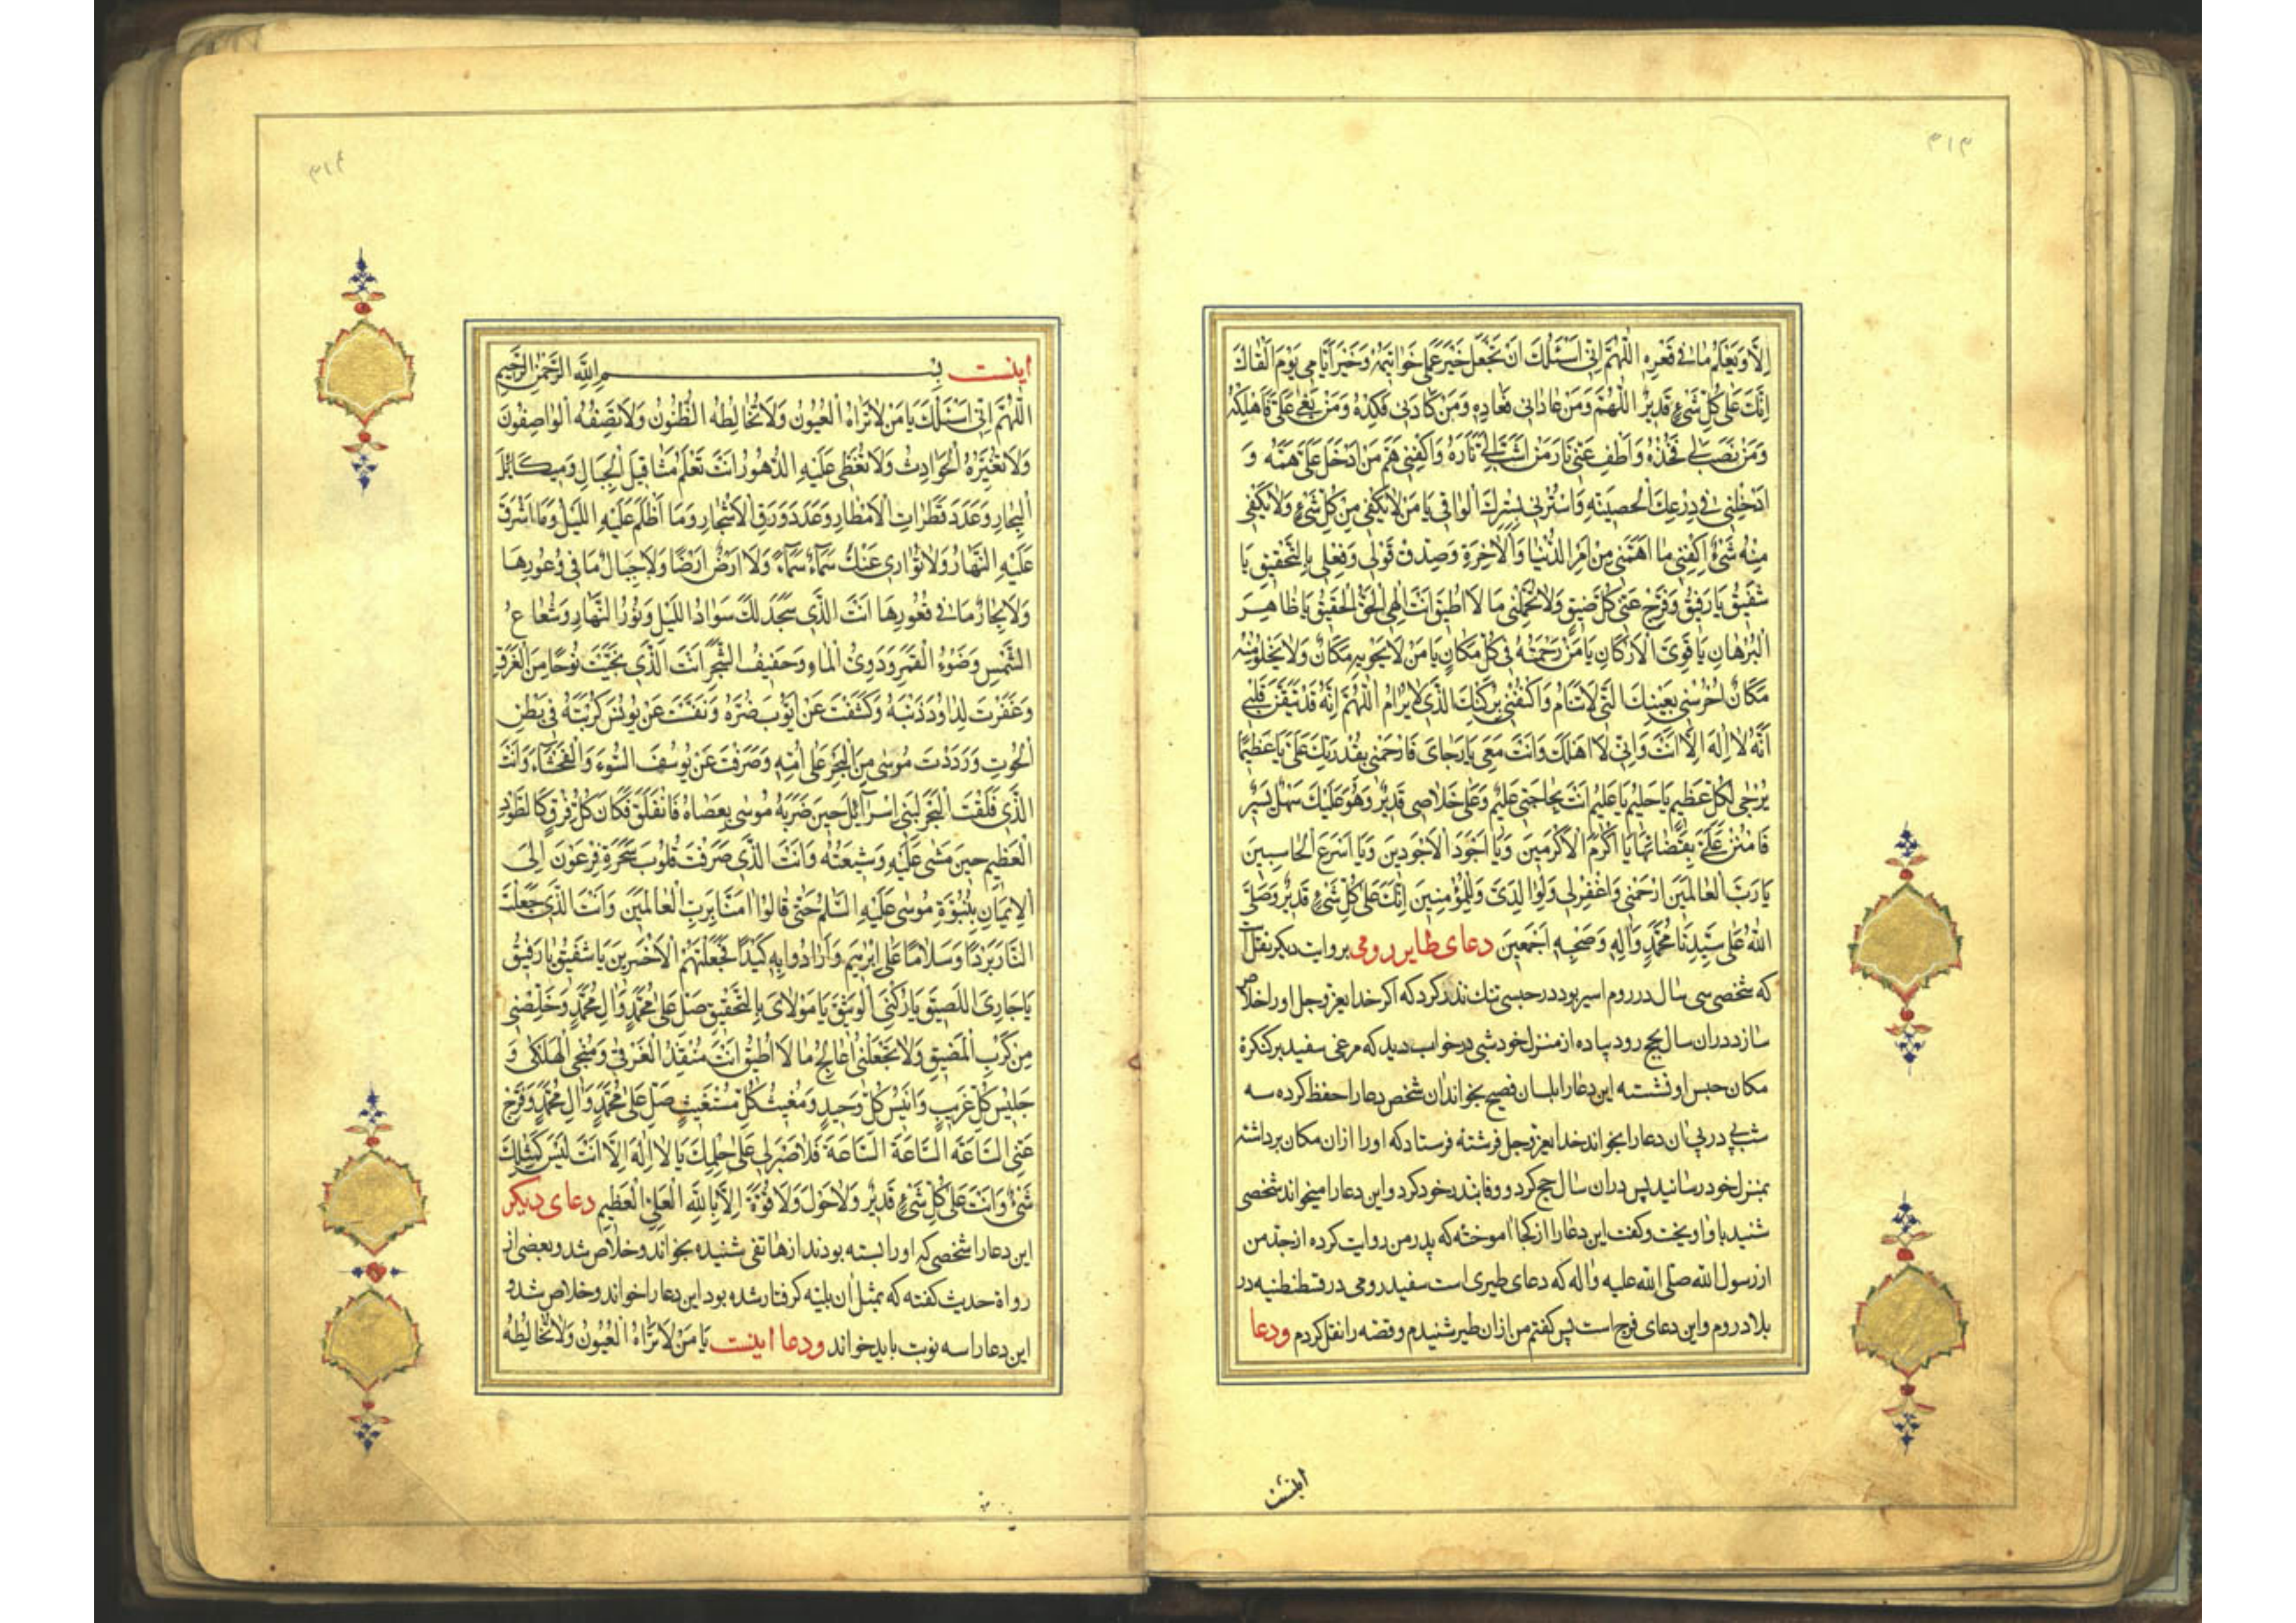 ۳۱۳
اِلّا وَيَعْلَمُ ما في قَعْرِهِ اَللّهُمَّ اِنّي اَسْئَلُكَ اَنْ تَجْعَلَ خَيْرَ عَمَلي خَواتيمَهُ وَخَيْرَ اَيّامي يَوْمَ اَلْقاكَ
اِنَّكَ عَلى كُلِّ شَيْءٍ قَديرٌ اَللّهُمَّ وَمَنْ عاداني فَعادِهِ وَمَنْ كادَني فَكِدْهُ وَمَنْ بَغى عَلَيَّ فَاَهْلِكْهُ
وَمَنْ نَصَبَ لي فَخُذْهُ وَاَطْفِ عَنّي نارَ مَنْ اَشَبَّ لي نارَهُ وَاكْفِني هَمَّ مَنْ اَدْخَلَ عَلَيَّ هَمَّهُ وَ
اَدْخِلْني في دِرْعِكَ الْحَصينَةِ وَاسْتُرْني بِسِتْرِكَ الْواقي يا مَنْ لا يَكْفي مِنْ كُلِّ شَيْءٍ وَلا يَكْفي
مِنْهُ شَيْءٌ اِكْفِني ما اَهَمَّني مِنْ اَمْرِ الدُّنْيا وَالْاخِرَةِ وَصَدِّقْ قَوْلي وَفِعْلي بِالتَّحْقيقِ يا
شَفيقُ يا رَفيقُ وَفَرِّجْ عَنّي كُلَّ ضيقٍ وَلا تُحَمِّلْني ما لا اُطيقُ اَنْتَ اِلهِي الْحَقُّ الْحَقيقُ يا ظاهِرَ
الْبُرْهانِ يا قَوِيَّ الْاَرْكانِ يا مَنْ رَحْمَتُهُ في كُلِّ مَكانٍ يا مَنْ لا يَحْويهِ مَكانٌ وَلا يَخْلُو مِنْهُ
مَكانٌ اُحْرُسْني بِعَيْنِكَ الَّتي لا تَنامُ وَاكْنُفْني بِرُكْنِكَ الَّذي لا يُرامُ اَللّهُمَّ اِنَّهُ قَدْ تَيَقَّنَ قَلْبي
اَنَّهُ لا اِلهَ اِلّا اَنْتَ وَاِنّي لا اَهْلَكُ وَاَنْتَ مَعي يا رَجايَ فَارْحَمْني بِقُدْرَتِكَ عَلَيَّ يا عَظيمًا
يُرْجى لِكُلِّ عَظيمٍ يا حَليمُ يا عَليمُ اَنْتَ بِحاجَتي عَليمٌ وَعَلى خَلاصي قَديرٌ وَهُوَ عَلَيْكَ سَهْلٌ يَسيرٌ
فَامْنُنْ عَلَيَّ بِقَضائِها يا اَكْرَمَ الْاَكْرَمينَ وَيا اَجْوَدَ الْاَجْوَدينَ وَيا اَسْرَعَ الْحاسِبينَ
يا رَبَّ الْعالَمينَ اِرْحَمْني وَاغْفِرْ لي وَلِوالِدَيَّ وَلِلْمُؤْمِنينَ اِنَّكَ عَلى كُلِّ شَيْءٍ قَديرٌ وَصَلَّى
اللهُ عَلى سَيِّدِنا مُحَمَّدٍ وَالِهِ وَصَحْبِهِ اَجْمَعينَ دعای طایر رومی بروایت دیکر نقل است
که شخصی سی سال در روم اسیر بود در حبسی تنك نذر کرد که اکر خدا یعز وجل او را خلاص
سازد در آن سال بحج رود پیاده از منزل خود شبی در خواب دید که مرغی سفید بر کنکرۀ
مکان حبس او نشسته این دعا را بلسان فصیح بخواند آن شخص دعا را حفظ کرده سه
شب پی در پی آن دعا را بخواند خدا یعز وجل فرشته فرستاد که او را از آن مکان برداشته
بمنزل خود رسانید پس در آن سال حج کرد و وفا بنذر خود کرد و این دعا را میخواند شخصی
شنید باو آویخت و کفت این دعا را از کجا آموختۀ که پدر من روایت کرده از جد من
از رسول الله صلی الله علیه وآله که دعای طیری است سفید رومی در قسطنطنیه در
بلاد روم و این دعای فرج است پس کفتم من از آن طیر شنیدم و قصه را نقل کردم ودعا
اینست
۳۱۴
اینست بِسْمِ اللهِ الرَّحْمنِ الرَّحيمِ
اَللّهُمَّ اِنّي اَسْئَلُكَ يا مَنْ لا تَراهُ الْعُيُونُ وَلا تُخالِطُهُ الظُّنُونُ وَلا يَصِفُهُ الْواصِفُونَ
وَلا تُغَيِّرُهُ الْحَوادِثُ وَلا تَغْطى عَلَيْهِ الدُّهُورُ اَنْتَ تَعْلَمُ مَثاقيلَ الْجِبالِ وَمَيكائلَ
الْبِحارِ وَعَدَدَ قَطَراتِ الْاَمْطارِ وَعَدَدَ وَرَقِ الْاَشْجارِ وَما اَظْلَمَ عَلَيْهِ اللَّيْلُ وَما اَشْرَقَ
عَلَيْهِ النَّهارُ وَلا تُواري عَنْكَ سَماءٌ سَماءً وَلا اَرْضٌ اَرْضًا وَلا جِبالٌ ما في وُعُورِها
وَلا بِحارٌ ما في قُعُورِها اَنْتَ الَّذي سَجَدَ لَكَ سَوادُ اللَّيْلِ وَنُورُ النَّهارِ وَشُعاعُ
الشَّمْسِ وَضَوْءُ الْقَمَرِ وَدَوِيُّ الْماءِ وَحَفيفُ الشَّجَرِ اَنْتَ الَّذي نَجَّيْتَ نُوحًا مِنَ الْغَرَقِ
وَغَفَرْتَ لِداوُدَ ذَنْبَهُ وَكَشَفْتَ عَنْ اَيُّوبَ ضُرَّهُ وَنَفَّسْتَ عَنْ يُونُسَ كُرْبَتَهُ في بَطْنِ
الْحُوتِ وَرَدَدْتَ مُوسى مِنَ الْبَحْرِ عَلى اُمِّهِ وَصَرَفْتَ عَنْ يُوسُفَ السُّوءَ وَالْفَحْشاءَ وَاَنْتَ
الَّذي فَلَقْتَ الْبَحْرَ لِبَني اِسْرائيلَ حينَ ضَرَبَهُ مُوسى بِعَصاهُ فَانْفَلَقَ فَكانَ كُلُّ فِرْقٍ كَالطَّوْدِ
الْعَظيمِ حينَ مَشى عَلَيْهِ وَشيعَتُهُ وَاَنْتَ الَّذي صَرَفْتَ قُلُوبَ سَحَرَةِ فِرْعَوْنَ اِلَى
الْايمانِ بِنُبُوَّةِ مُوسى عَلَيْهِ السَّلمُ حَتّى قالُوا امَنّا بِرَبِّ الْعالَمينَ وَاَنْتَ الَّذي جَعَلْتَ
النّارَ بَرْدًا وَسَلامًا عَلى اِبْرهيمَ وَاَرادُوا بِهِ كَيْدًا فَجَعَلْتَهُمُ الْاَخْسَرينَ يا شَفيقُ يا رَفيقُ
يا جارِيَ اللَّصيقَ يا رُكْنِيَ الْوَثيقَ يا مَوْلايَ بِالتَّحْقيقِ صَلِّ عَلى مُحَمَّدٍ وَالِ مُحَمَّدٍ وَخَلِّصْني
مِنْ كَرْبِ الْمَضيقِ وَلا تَجْعَلْني اُعالِجُ ما لا اُطيقُ اَنْتَ مُنْقِذُ الْغَرْقى وَمُنْجِي الْهَلْكى وَ
جَليسُ كُلِّ غَريبٍ وَاَنيسُ كُلِّ وَحيدٍ وَمُغيثُ كُلِّ مُسْتَغيثٍ صَلِّ عَلى مُحَمَّدٍ وَالِ مُحَمَّدٍ وَفَرِّجْ
عَنِّي السّاعَةَ السّاعَةَ السّاعَةَ فَلا صَبْرَ لي عَلى حِلْمِكَ يا لا اِلهَ اِلّا اَنْتَ لَيْسَ كَمِثْلِكَ
شَيْءٌ وَاَنْتَ عَلى كُلِّ شَيْءٍ قَديرٌ وَلا حَوْلَ وَلا قُوَّةَ اِلّا بِاللهِ الْعَلِيِّ الْعَظيمِ دعای دیکر
این دعا را شخصی که او را بسته بودند از هاتفی شنیده بخواند و خلاص شد و بعضی از
رواة حدیث کفته که بمثل آن بلیّه کرفتار شده بود این دعا را خواند و خلاص شد و
این دعا را سه نوبت باید خواند ودعا اینست يا مَنْ لا تَراهُ الْعُيُونُ وَلا تُخالِطُهُ